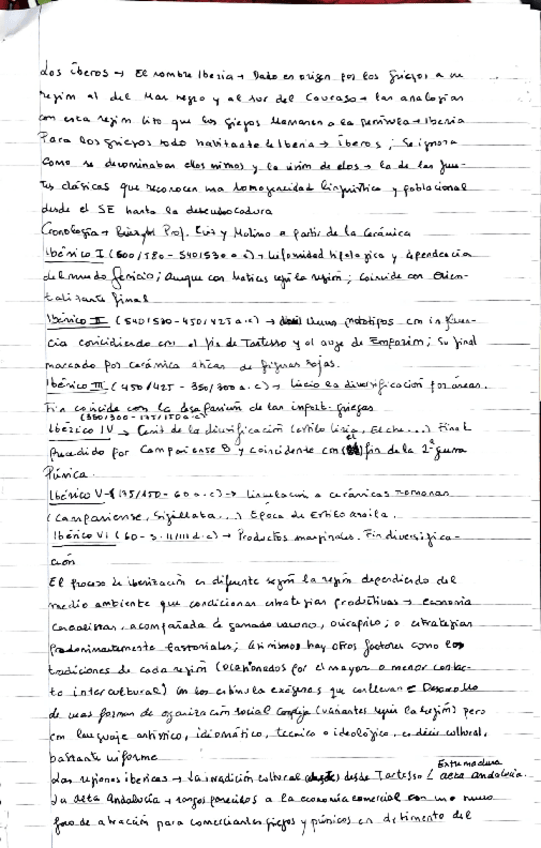 Los íberos → El nombre Iberia → Dado en origen por los griegos a una
región al del Mar negro y al sur del Caucaso → las analogías
con esta región hizo que los griegos llamaran a la península → Iberia
Para los griegos todo habitante de Iberia → íberos; Se ignora
como se denominaban ellos mismos y la visión de ellos → la de las fuen-
tes clásicas que reconocen una homogeneidad lingüística y poblacional
desde el SE hasta la desembocadura
Cronología → Prof. Ruiz y Molino a partir de la cerámica
Ibérico I (600/580 - 540/530 a.c) → Uniformidad tipologica y dependencia
del mundo fenicio; Aunque con matices según la región; Coincide con Orien-
talizante final
Ibérico II (540/530-450/425 a.c) → nuevos prototipos con influen-
cia coincidiendo con el fin de Tartesso y el auge de Emporion; Su final
marcado por cerámica aticas de figuras rojas.
Ibérico III (450/425 - 350/300 a.c) → Inicio la diversificación por áreas.
Fin coincide con la desaparición de las import. griegas
(350/300 - 175/150 a.c)
Ibérico IV → Cenit de la diversificación (estilo Liria, Elche...) Final
precedido por Campaniense B y coincidente con el fin de la 2ª guerra
Púnica.
Ibérico V (175/150 - 60 a.c) → a cerámicas romanas
(Campaniense, Sigillata...) Epoca de
Ibérico VI (60 - s. II/III d.c) → Productos marginales. Fin diversifica-
ción
El proceso de iberización es diferente según la región dependiendo del
medio ambiente que condicionan estrategias productivas → economía
cerealistas, acompañada de ganado vacuno, ovicaprino; o estrategias
predominantemente pastoriales; Asimismo hay otros factores como las
tradiciones de cada región (ocasionados por el mayor o menor contac-
to intercultural) con los estímulos exógenos que conllevan Desarrollo
de unas formas de organización social compleja (variantes según la región) pero
con lenguaje artístico, idiomático, tecnico o ideológico, es decir cultural,
bastante uniforme
Extremadura
Las regiones ibericas → La tradición cultural desde Tartesso alta andalucia.
La alta Andalucía → rasgos parecidos a la economía comercial con un nuevo
foco de atracción para comerciantes griegos y púnicos en detrimento del